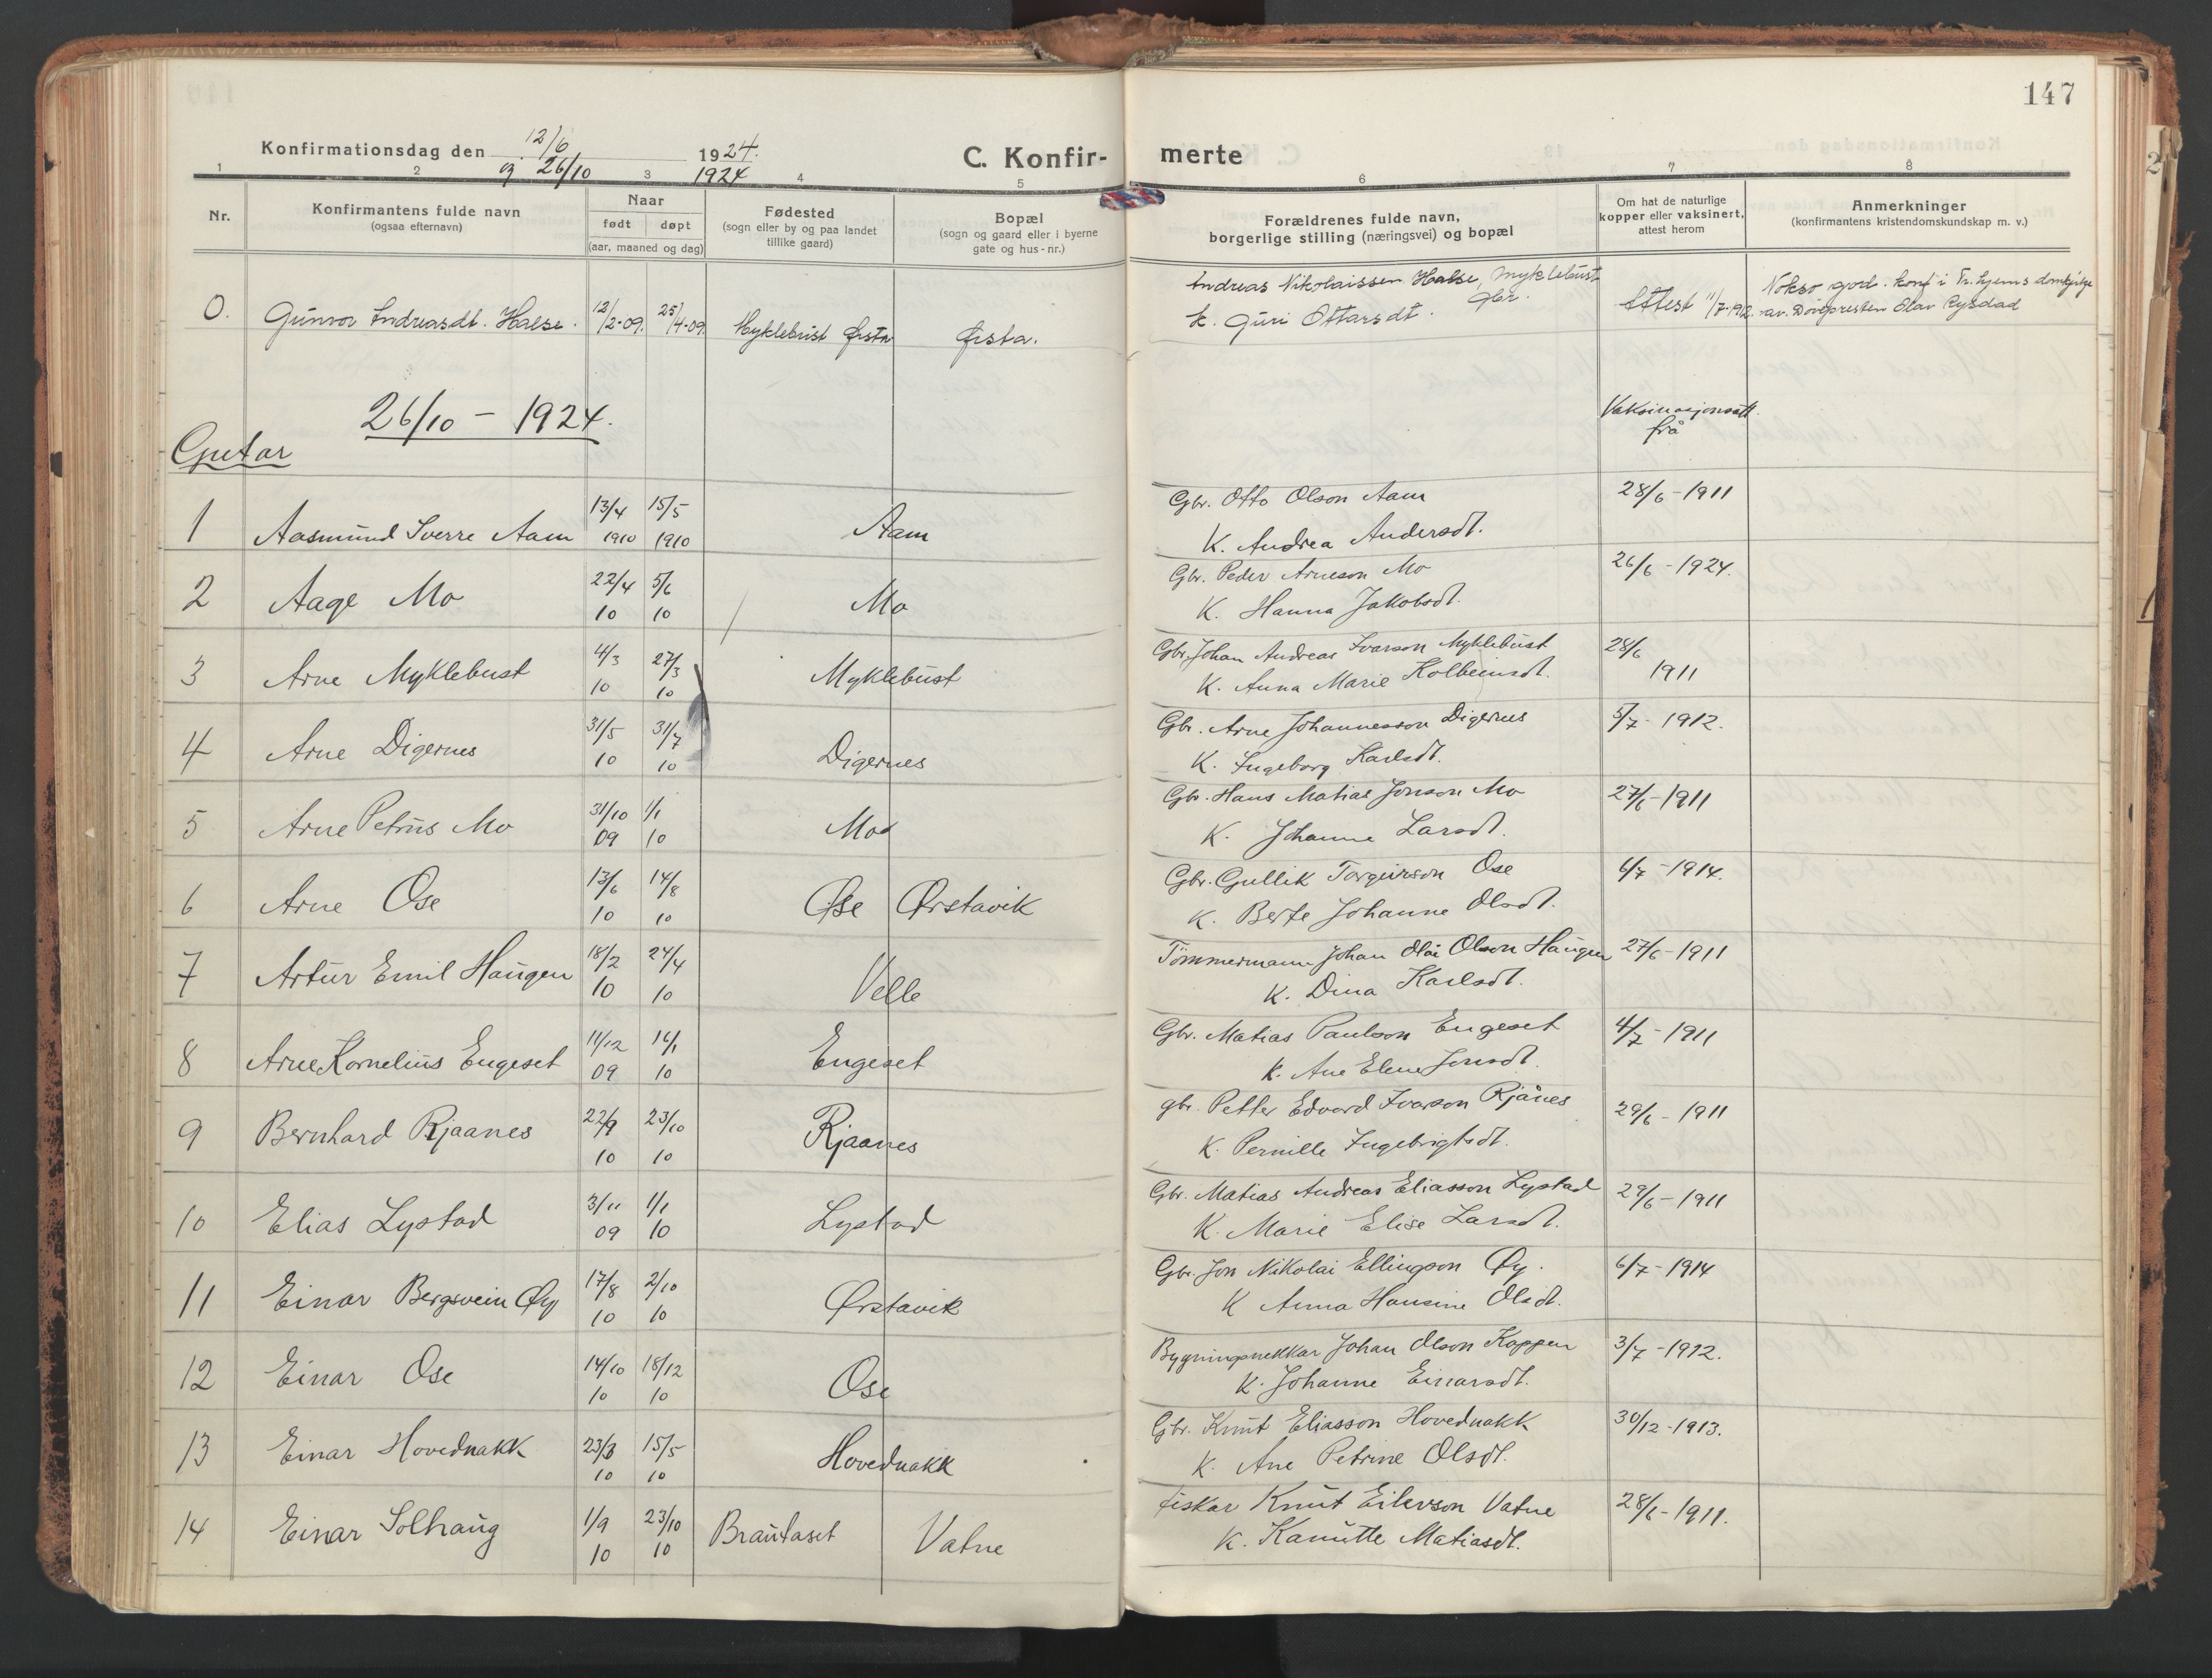 147
Konfirmationsdag den 12/6 1924.
og 26/10 1924
C. Konfir- merte
1 2 3 4 5 6 7 8
Nr.
Konfirmantens fulde navn
(ogsaa efternavn)
Naar
født døpt
(aar, maaned og dag)
Fødested
(sogn eller by og paa landet
tillike gaard)
Bopæl
(sogn og gaard eller i byerne
gate og hus-nr.)
Forældrenes fulde navn,
borgerlige stilling (næringsvei) og bopæl
Om hat de naturlige
kopper eller vaksinert,
attest herom
Anmerkninger
(konfirmantens kristendomskundskap m. v.)
0. Gunvor Andreasdt. Halse. 12/2-09. 25/4-09 Myklebust Ørsta Ørsta.
Andreas Nikolaissen Halse, Myklebust
gbr.
k. Guri Ottarsdt.
Attest 11/7-912.
Nokso god. konf i Tr.hjems domkirke
av. Døvepresten Olav
26/10 - 1924.
Gutar
Vaksinasjonsatt.
frå
1 Aasmund Sverre Aam 13/4 1910 15/5 1910 Aam
Gbr. Otto Olson Aam 28/6-1911
K. Andrea Andersdt.
2 Aage Mo 22/4 10 5/6 10 Mo
Gbr. Peder Arneson Mo 26/6-1924.
K. Hanna Jakobsdt.
3 Arne Myklebust 4/3 10 27/3 10 Myklebust
Gbr. Johan Andreas Ivarson Myklebust 28/6 1911
K. Anna Marie Kolbeinsdt.
4 Arne Digernes 31/5 10 31/7 10 Digernes
Gbr. Arne Johannesson Digernes 5/7-1912.
K. Ingeborg Karlsdt.
5 Arne Petrus Mo 31/10 09 1/1 10 Mo
Gbr. Hans Matias Jonson Mo 27/6-1911
K. Johanne Larsdt.
6 Arne Ose 13/6 10 14/8 10 Ose Ørstavik
Gbr. Gullik Torgeirson Ose 6/7-1914.
K. Berte Johanne Olsdt.
7 Artur Emil Haugen 18/2 10 24/4 10 Velle
Tømmermann Johan Olai Olson Haugen 27/6-1911
K. Dina Karlsdt.
8 Arne Kornelius Engeset 11/12 09 16/1 10 Engeset
Gbr. Matias Paulson Engeset 4/7-1911
K. Ane Elene Jonsdt.
9 Bernhard Rjaanes 22/9 10 23/10 10 Rjaanes
gbr. Petter Edvard Ivarson Rjånes 29/6-1911
K. Pernille Ingebrigtsdt.
10 Elias Lystad 3/11 09 1/1 10 Lystad
Gbr. Matias Andreas Eliasson Lystad 29/6-1911
K. Marie Elise Larsdt.
11 Einar Bergsvein Øy 17/8 10 2/10 10 Ørstavik
Gbr. Jon Nikolai Ellingson Øy. 6/7-1914
K Anna Hansine Olsdt.
12 Einar Ose 14/10 10 18/12 10 Ose
Bygningsnekkar Johan Olson Koppen 3/7-1912.
K. Johanne Einarsdt.
13 Einar Hovednakk 23/3 10 15/5 10 Hovednakk
Gbr. Knut Eliasson Hovednakk 30/12-1913.
K. Ane Petrine Olsdt.
14 Einar Solhaug 1/9 10 23/10 10 Brautaset Vatne
fiskar Knut Eilevson Vatne 28/6-1911.
K. Kanutte Matiasdt.